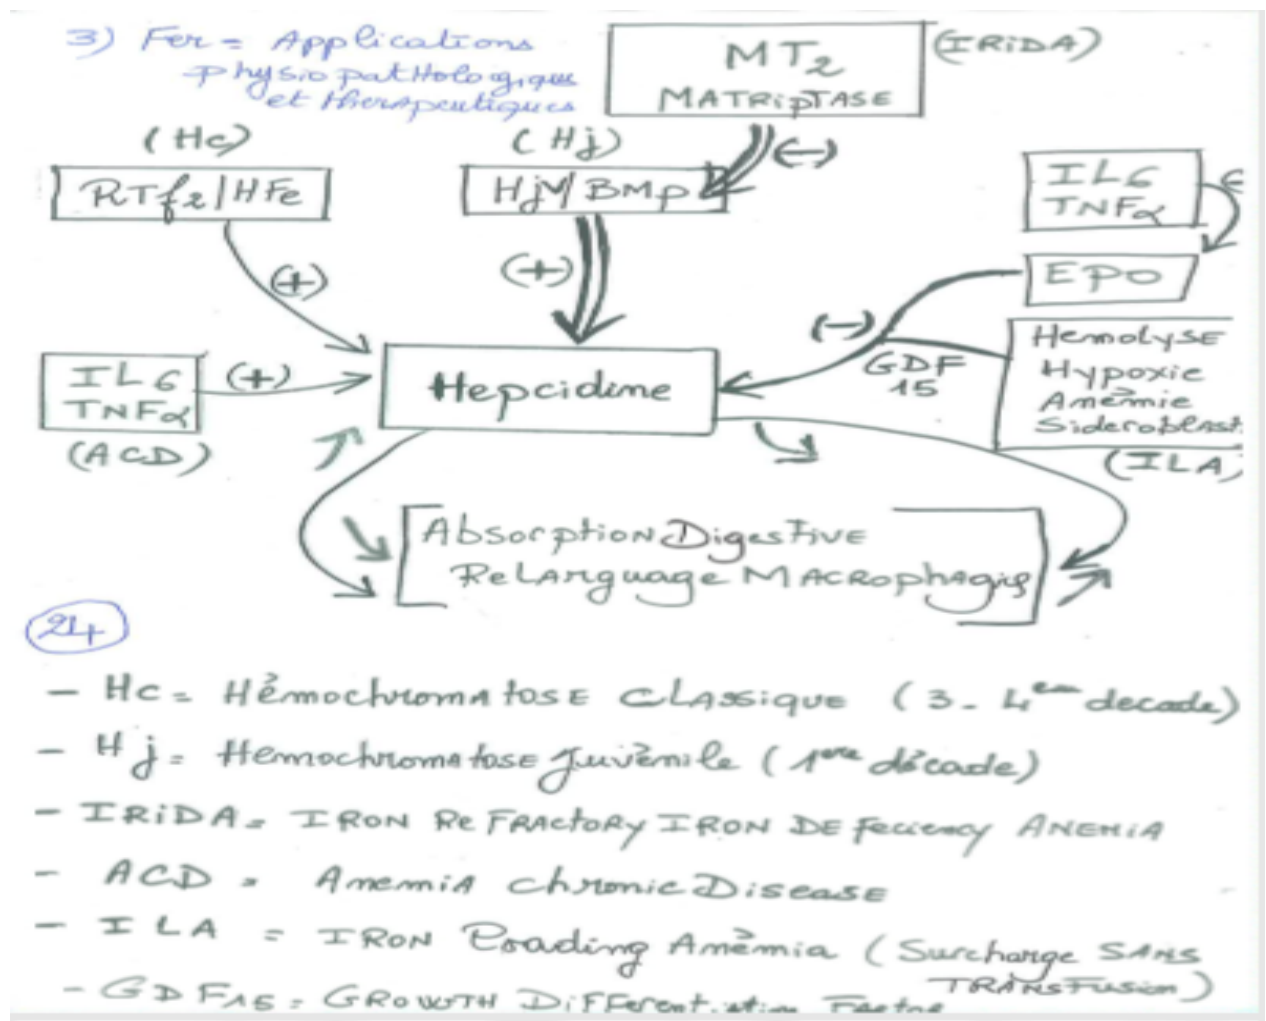 3) Fer = Applications
physiopathologiques
et therapeutiques
MT2
MATRiPTASE
(IRiDA)
(Hc)
RTf2/HFe
(Hj)
HjV/BMP
(-)
IL6
TNFα
EPO
(+)
(+)
(-)
GDF
15
Hemolyse
Hypoxie
Anémie
Sideroblast
(ILA)
IL6
TNFα
(+)
(ACD)
Hepcidine
Absorption Digestive
Relarguage MACROphagiq
24
- Hc = Hémochromatose classique (3-4em decade)
- Hj = Hemochromatose juvénile (1ere décade)
- IRiDA = IRON ReFRActoRy IRON DEFeciency ANEMiA
- ACD = Anemia chronic Disease
- ILA = IRON Loading Anémia (Surcharge SANS
TRANSFusion)
- GDF15 = GROWTH DiFFerentiation Factor